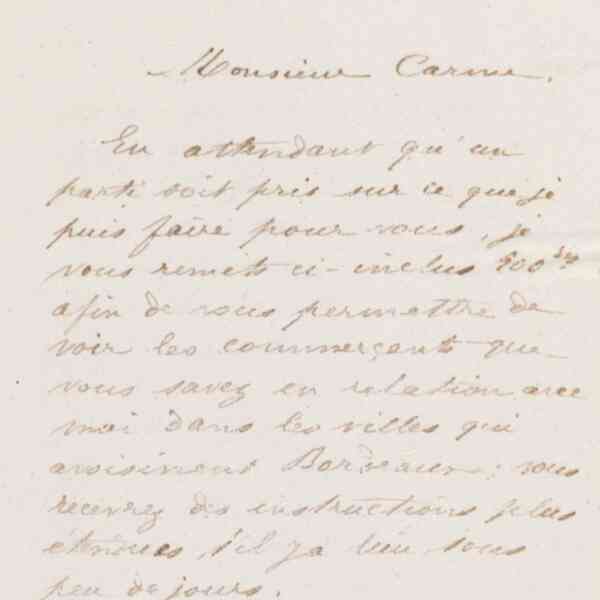 Monsieur Carme.
En attendant qu'un
parti soit pris sur ce que je
puis faire pour vous, je
vous remets ci-inclus 500
afin de vous permettre de
voir les commerçents que
vous savez en relation avec
moi dans les villes qui
avoisinent Bordeaux; vous
recevrez des instructions plus
étendues, s'il y a lieu sous
peu de jours.